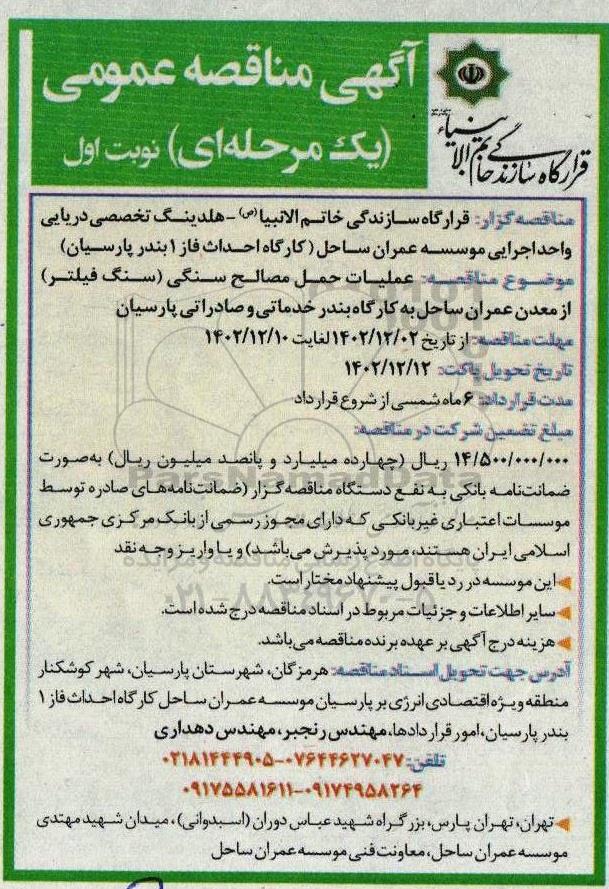 آگهی مناقصه عمومی
(یک مرحله‌ای) نوبت اول
قرارگاه سازندگی خاتم الانبیاء
مناقصه گزار: قرارگاه سازندگی خاتم الانبیا (ص) - هلدینگ تخصصی دریایی
واحد اجرایی موسسه عمران ساحل (کارگاه احداث فاز ۱ بندر پارسیان)
موضوع مناقصه: عملیات حمل مصالح سنگی (سنگ فیلتر)
از معدن عمران ساحل به کارگاه بندر خدماتی و صادراتی پارسیان
مهلت مناقصه: از تاریخ ۱۴۰۲/۱۲/۰۲ لغایت ۱۴۰۲/۱۲/۱۰
تاریخ تحویل پاکت: ۱۴۰۲/۱۲/۱۲
مدت قرارداد: ۶ ماه شمسی از شروع قرارداد
مبلغ تضمین شرکت در مناقصه:
۱۴/۵۰۰/۰۰۰/۰۰۰ ریال (چهارده میلیارد و پانصد میلیون ریال) به‌صورت
ضمانت‌نامه بانکی به نفع دستگاه مناقصه گزار (ضمانت‌نامه‌های صادره توسط
موسسات اعتباری غیربانکی که دارای مجوز رسمی از بانک مرکزی جمهوری
اسلامی ایران هستند، مورد پذیرش می‌باشد) و یا واریز وجه نقد
این موسسه در رد یا قبول پیشنهاد مختار است.
سایر اطلاعات و جزئیات مربوط در اسناد مناقصه درج شده است.
هزینه درج آگهی بر عهده برنده مناقصه می‌باشد.
آدرس جهت تحویل اسناد مناقصه: هرمزگان، شهرستان پارسیان، شهر کوشکنار
منطقه ویژه اقتصادی انرژی بر پارسیان موسسه عمران ساحل کارگاه احداث فاز ۱
بندر پارسیان، امور قراردادها، مهندس رنجبر، مهندس دهداری
تلفن: ۰۷۶۴۴۶۲۷۰۴۷-۰۲۱۸۱۴۴۴۹۰۵
۰۹۱۷۴۹۵۸۲۶۴-۰۹۱۷۵۵۸۱۶۱۱
تهران، تهران پارس، بزرگراه شهید عباس دوران (اسبدوانی)، میدان شهید مهتدی
موسسه عمران ساحل، معاونت فنی موسسه عمران ساحل